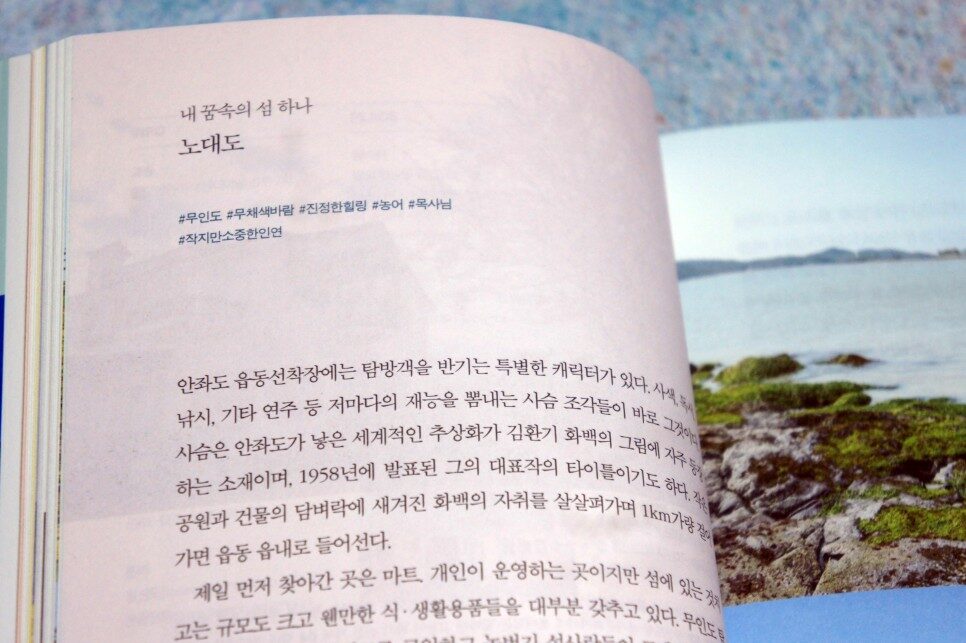 내 꿈속의 섬 하나
노대도
#무인도 #무채색바람 #진정한힐링 #농어 #목사님
#작지만소중한인연
안좌도 읍동선착장에는 탐방객을 반기는 특별한 캐릭터가 있다. 사색,
낚시, 기타 연주 등 저마다의 재능을 뽐내는 사슴 조각들이 바로 그것이다
사슴은 안좌도가 낳은 세계적인 추상화가 김환기 화백의 그림에 자주
하는 소재이며, 1958년에 발표된 그의 대표작의 타이틀이기도 하다.
공원과 건물의 담벼락에 새겨진 화백의 자취를 살살펴가며 1km가량 걸어
가면 읍동 읍내로 들어선다.
제일 먼저 찾아간 곳은 마트, 개인이 운영하는 곳이지만 섬에 있는 것치
고는 규모도 크고 웬만한 식·생활용품들을 대부분 갖추고 있다. 무인도